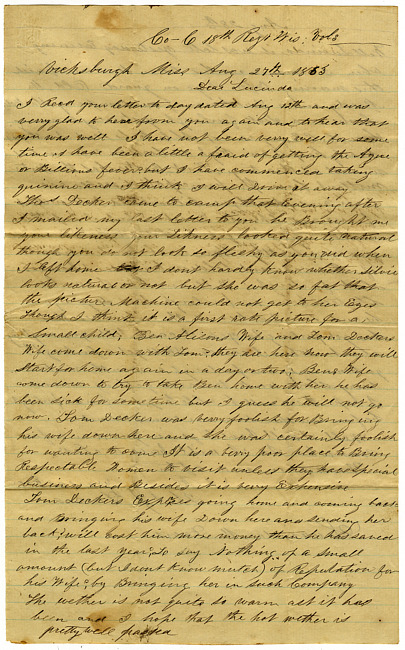 Co-C 18th Regt Wis. Vols
Vicksburgh Miss Aug 27th, 1863
Dear Lucinda
I Read your letter to day dated Aug 12th and was
very glad to hear from you again and to hear that
you was well I have not been very well for some
time I have been a little afraid of getting the Ague
or Billious fever but I have commenced taking
quinine and I think I will Drive it away
Thos Decker came to camp that Evening after
I mailed my last letter to you he Brought me
your likeness your likness looked quite natural
though you do not look so fleshy as you did when
I left home I dont hardly know whether Silvie
looks natural or not but she was so fat that
the picture Machine could not get to her Eyes
Though I think it is a first rate picture for a
Small child, Ben Wife and Tom Deckers
Wife come down with Tom, they are here now they will
Start for home again in a day or two, Bens Wife
come down to try to take Ben home with her he has
been Sick for some time but I guess he will not go
now. Tom Decker was verry foolish for Bringing
his wife down here and she was certainly foolish
for wanting to come It is a very poor place to Bring
Respectable Women to visit unless they have Special
business and Besides it is very Expensive
Tom Deckers going home and coming back
and Bringing his wife Down here and sending her
back, will cost him more money than he has saved
in the last year, to say Nothing of a small
amount (but I dont know mutch) of Reputation for
his Wife, by Bringing her in such Company
The wether is not quite so warm as it has
been and I hope that the hot wether is
pretty well passed